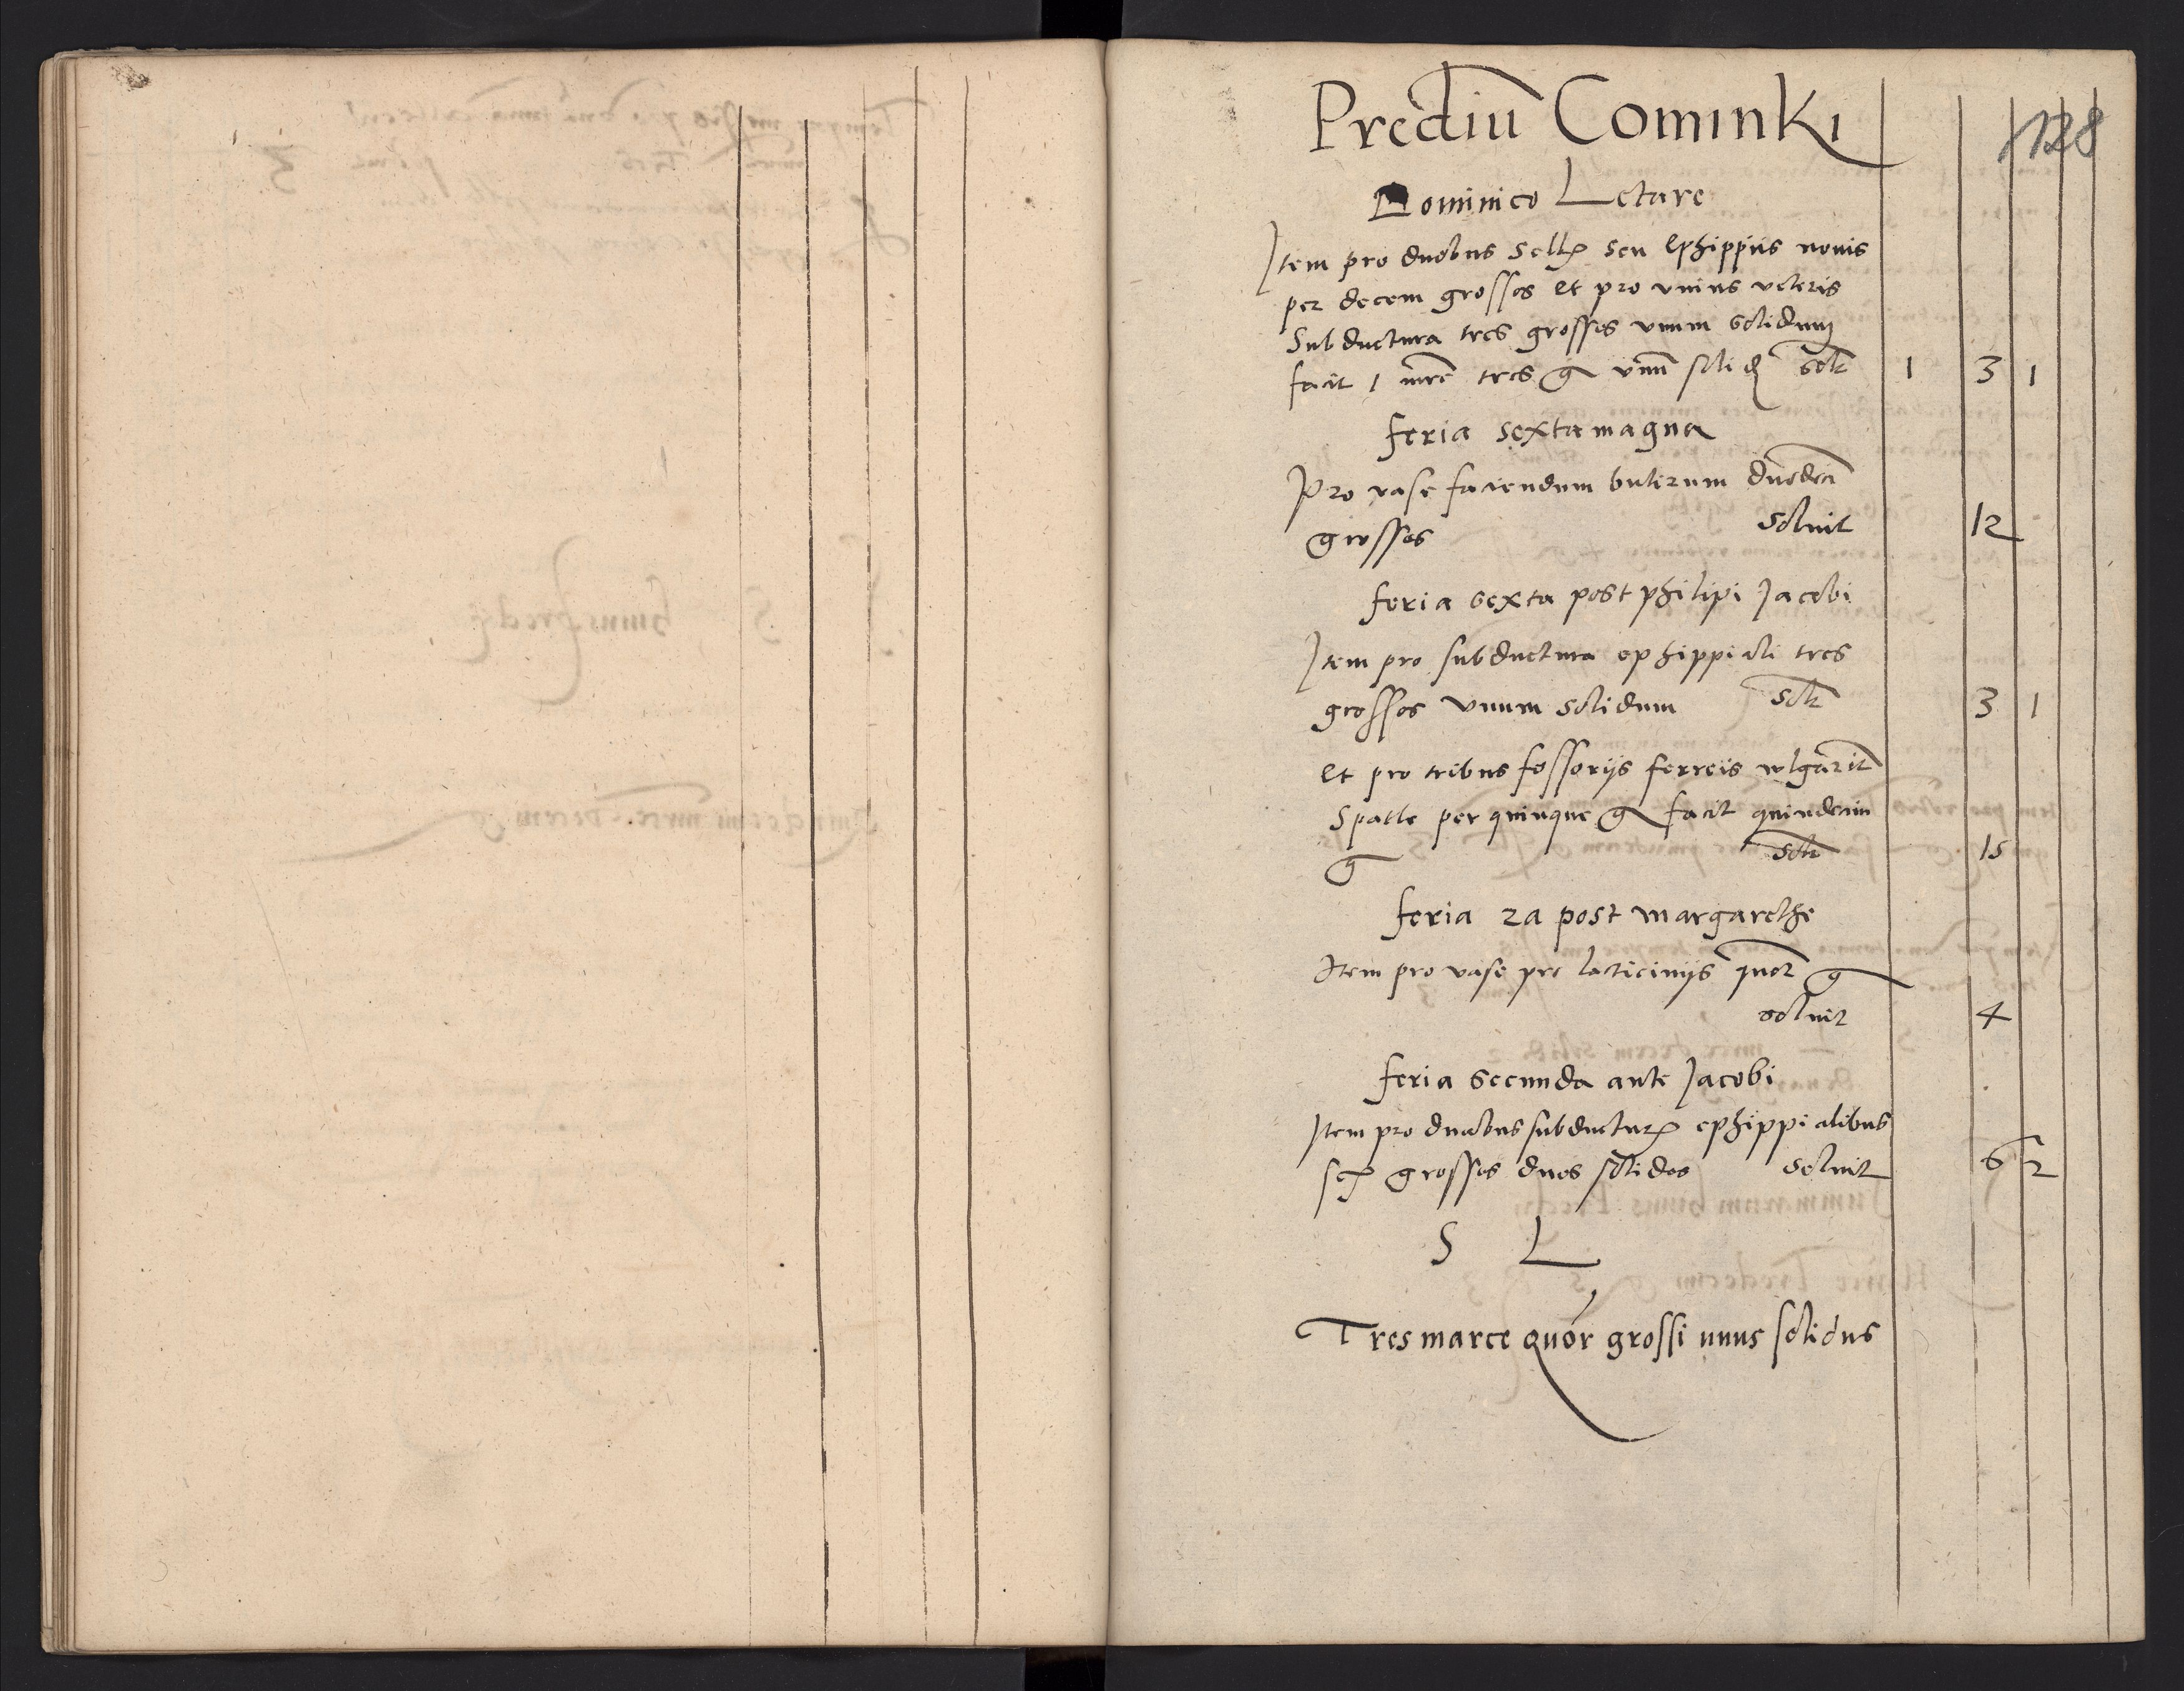 Prediū Cominki
128
Dominico Letare
Item pro duobus sell seu ephippiis nouis
per decem grossos et pro vnius veteris
Subductura tres grossos vnum solidum
facit 1 mrc tres g vnū solid solt 1 3 1
feria sexta magna
Pro vase faciendum butirum duodeci
grossos soluit 12
feria sexta post philipi Jacobi
Item pro subductura ephippiali tres
grossos vnum solidum solt 3 1
et pro tribus fossoriis ferreis wlgarit
Spatle per quinque g facit quindecim
g solt 15
feria 2a post margarethe
Item pro vase pro lacticiniis quor g
soluit 4
feria secunda ante Jacobi
Item pro duabus subductur ephippialibus
sex grossos duos solidos soluit 6 2
S L
Tres marce quor grossi unus solidus